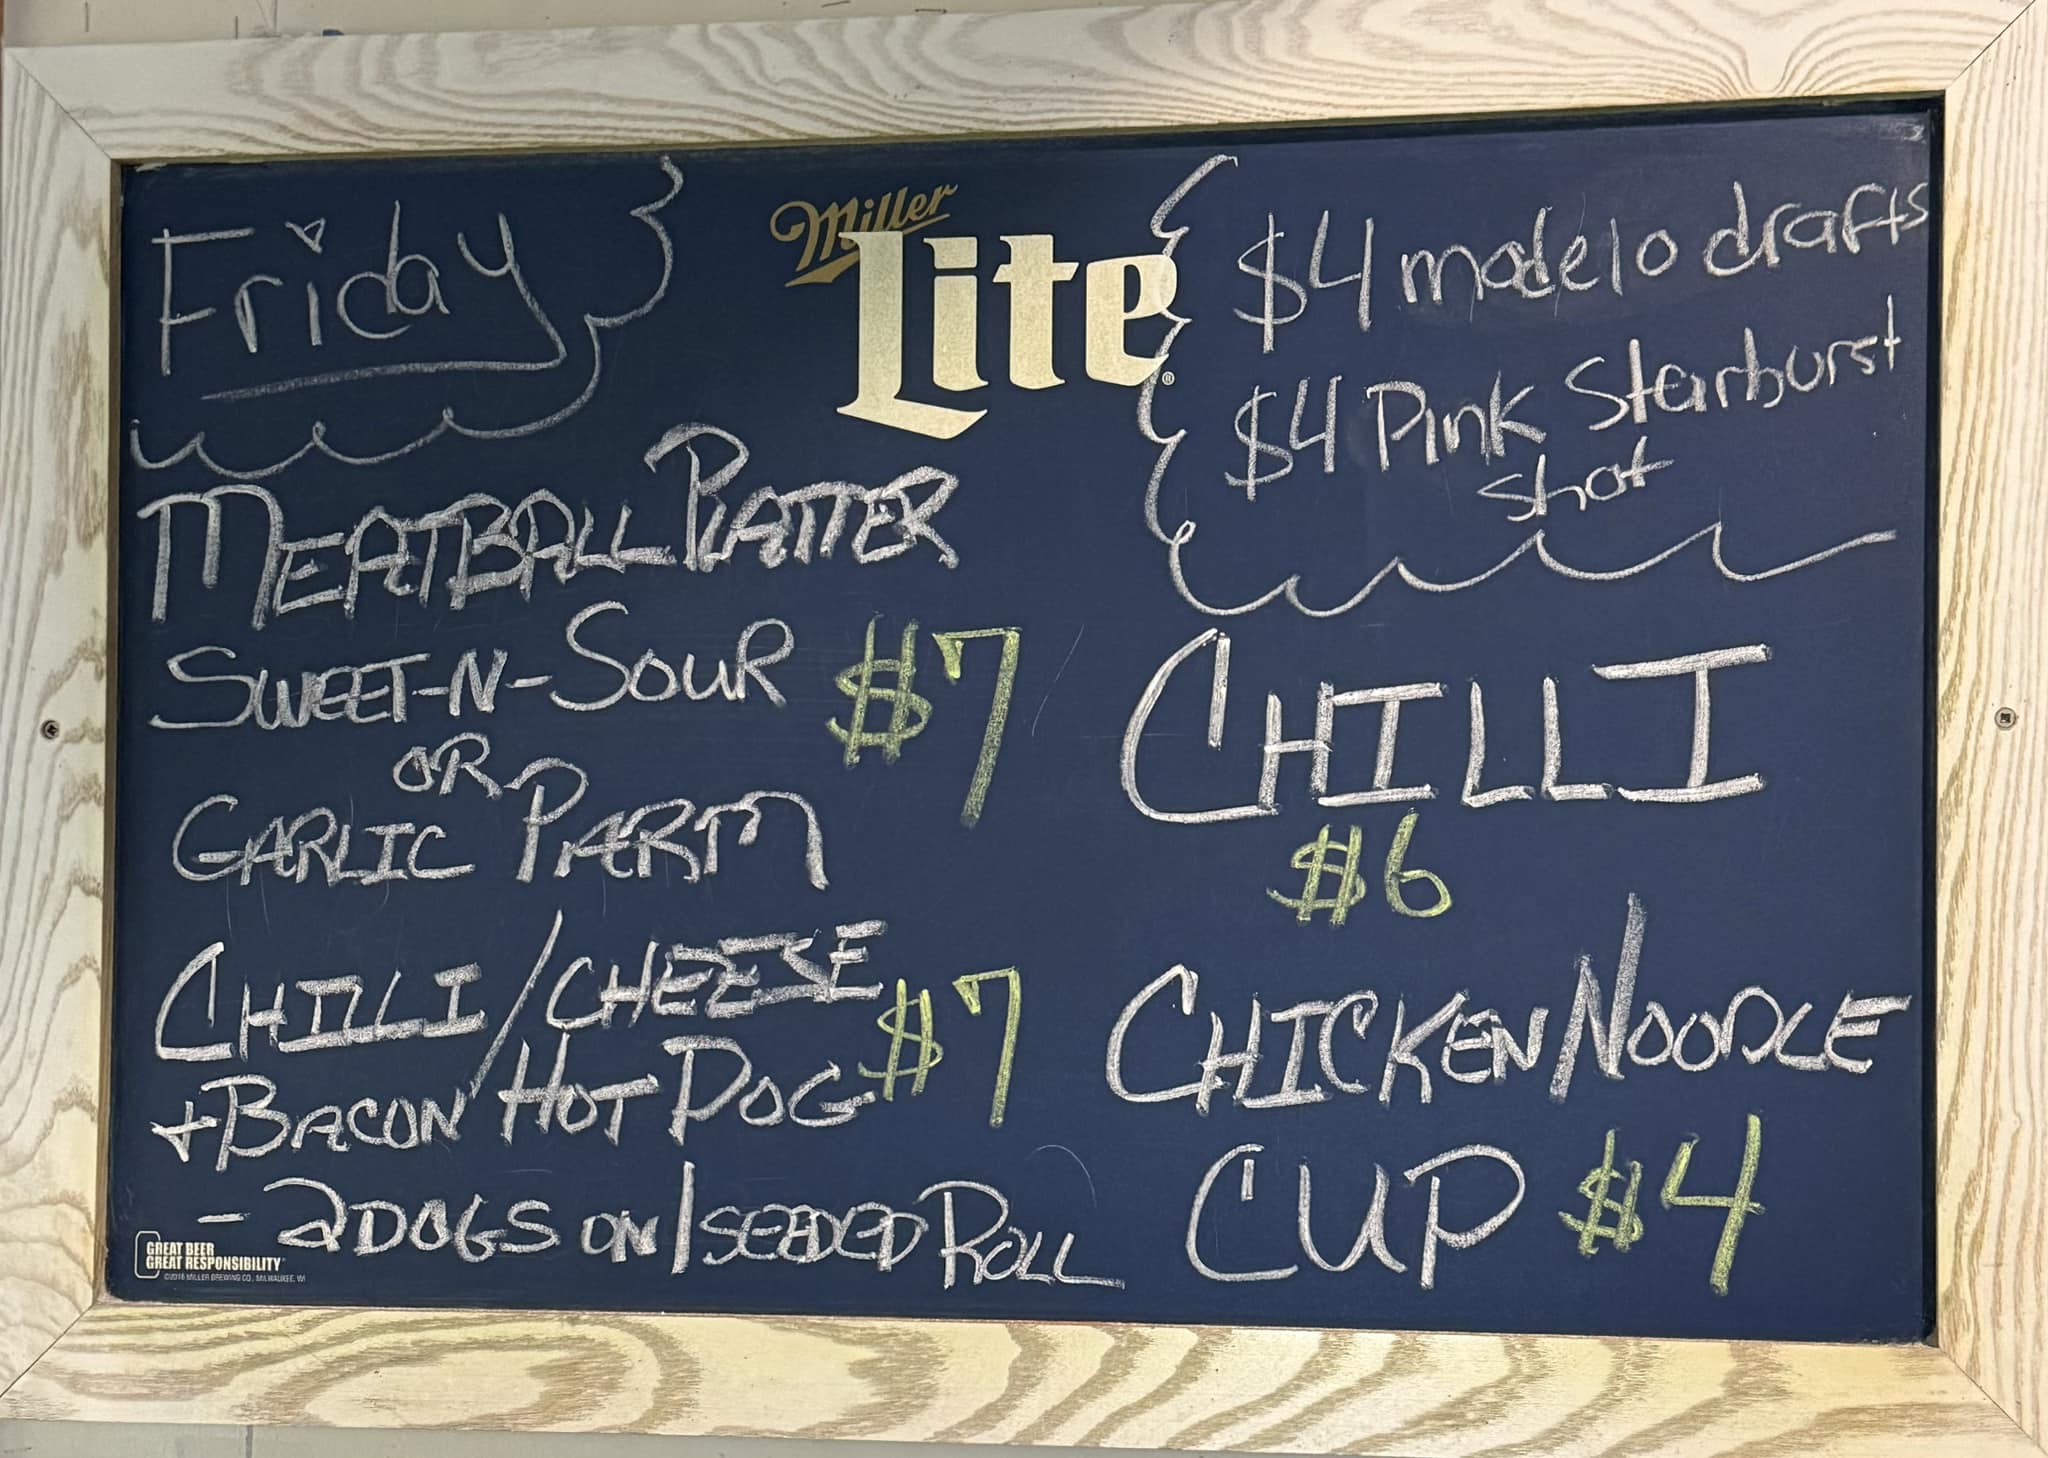 Friday
Miller
Lite
$4 modelo drafts
$4 Pink Starburst
shot
MEATBALL PLATTER
SWEET-N-SOUR $7
OR
GARLIC PARM
CHILLI/CHEESE
+BACON HOT DOG $7
- 2 DOGS ON/SEEDED ROLL
CHILLI
$6
CHICKEN NOODLE
CUP $4
GREAT BEER
GREAT RESPONSIBILITY
©2016 MILLER BREWING CO., MILWAUKEE, WI